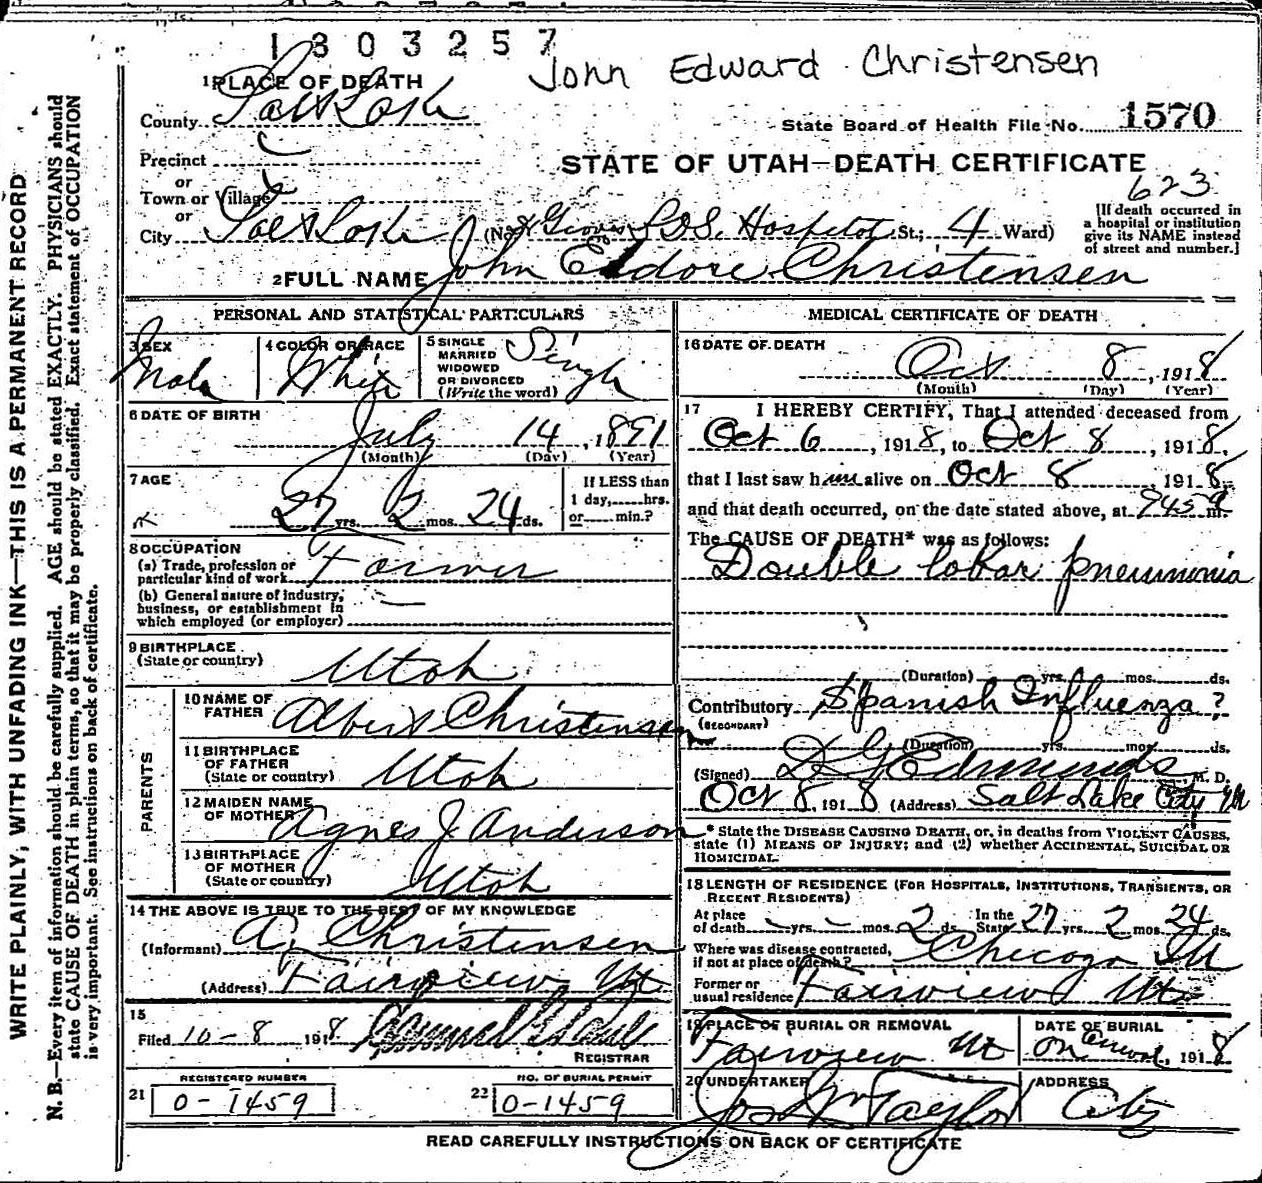 1303257
John Edward Christensen
1 PLACE OF DEATH
County Salt Lake
State Board of Health File No. 1570
Precinct
or
STATE OF UTAH—DEATH CERTIFICATE
623
Town or Village
or
City Salt Lake (No. Groves L.D.S. Hospital St.; 4 Ward)
[If death occurred in a hospital or institution give its NAME instead of street and number.]
2 FULL NAME John Eldore Christensen
PERSONAL AND STATISTICAL PARTICULARS
3 SEX Male
4 COLOR OR RACE White
5 SINGLE MARRIED WIDOWED OR DIVORCED (Write the word) Single
6 DATE OF BIRTH
July 14, 1891
(Month) (Day) (Year)
7 AGE
27 yrs. 2 mos. 24 ds.
If LESS than 1 day, hrs. or min.?
8 OCCUPATION
(a) Trade, profession or particular kind of work Farmer
(b) General nature of industry, business, or establishment in which employed (or employer)
9 BIRTHPLACE
(State or country) Utah
PARENTS
10 NAME OF FATHER Albert Christensen
11 BIRTHPLACE OF FATHER (State or country) Utah
12 MAIDEN NAME OF MOTHER Agnes J. Anderson
13 BIRTHPLACE OF MOTHER (State or country) Utah
14 THE ABOVE IS TRUE TO THE BEST OF MY KNOWLEDGE
(Informant) A. Christensen
(Address) Fairview Ut.
15
Filed 10-8 1918
REGISTRAR
REGISTERED NUMBER
21 0-1459
NO. OF BURIAL PERMIT
22 0-1459
MEDICAL CERTIFICATE OF DEATH
16 DATE OF DEATH
Oct 8, 1918
(Month) (Day) (Year)
17 I HEREBY CERTIFY, That I attended deceased from
Oct 6, 1918, to Oct 8, 1918,
that I last saw him alive on Oct 8 1918,
and that death occurred, on the date stated above, at m.
The CAUSE OF DEATH* was as follows:
Double lobar pneumonia
(Duration) yrs. mos. ds.
Contributory Spanish Influenza?
(SECONDARY)
(Duration) yrs. mos. ds.
(Signed) D G Edmunds, M. D.
Oct 8, 1918 (Address) Salt Lake City Ut
* State the DISEASE CAUSING DEATH, or, in deaths from VIOLENT CAUSES, state (1) MEANS OF INJURY; and (2) whether ACCIDENTAL, SUICIDAL OR HOMICIDAL.
18 LENGTH OF RESIDENCE (FOR HOSPITALS, INSTITUTIONS, TRANSIENTS, OR RECENT RESIDENTS)
At place of death — yrs. — mos. 2 ds. In the State 27 yrs. 2 mos. 24 ds.
Where was disease contracted, if not at place of death? Chicago Ill
Former or usual residence Fairview Ut
19 PLACE OF BURIAL OR REMOVAL
Fairview Ut
DATE OF BURIAL
on arrival, 1918
20 UNDERTAKER
Jos Wm Taylor
ADDRESS
City
READ CAREFULLY INSTRUCTIONS ON BACK OF CERTIFICATE
WRITE PLAINLY, WITH UNFADING INK—THIS IS A PERMANENT RECORD
N. B.—Every item of information should be carefully supplied. AGE should be stated EXACTLY. PHYSICIANS should
state CAUSE OF DEATH in plain terms, so that it may be properly classified. Exact statement of OCCUPATION
is very important. See instructions on back of certificate.